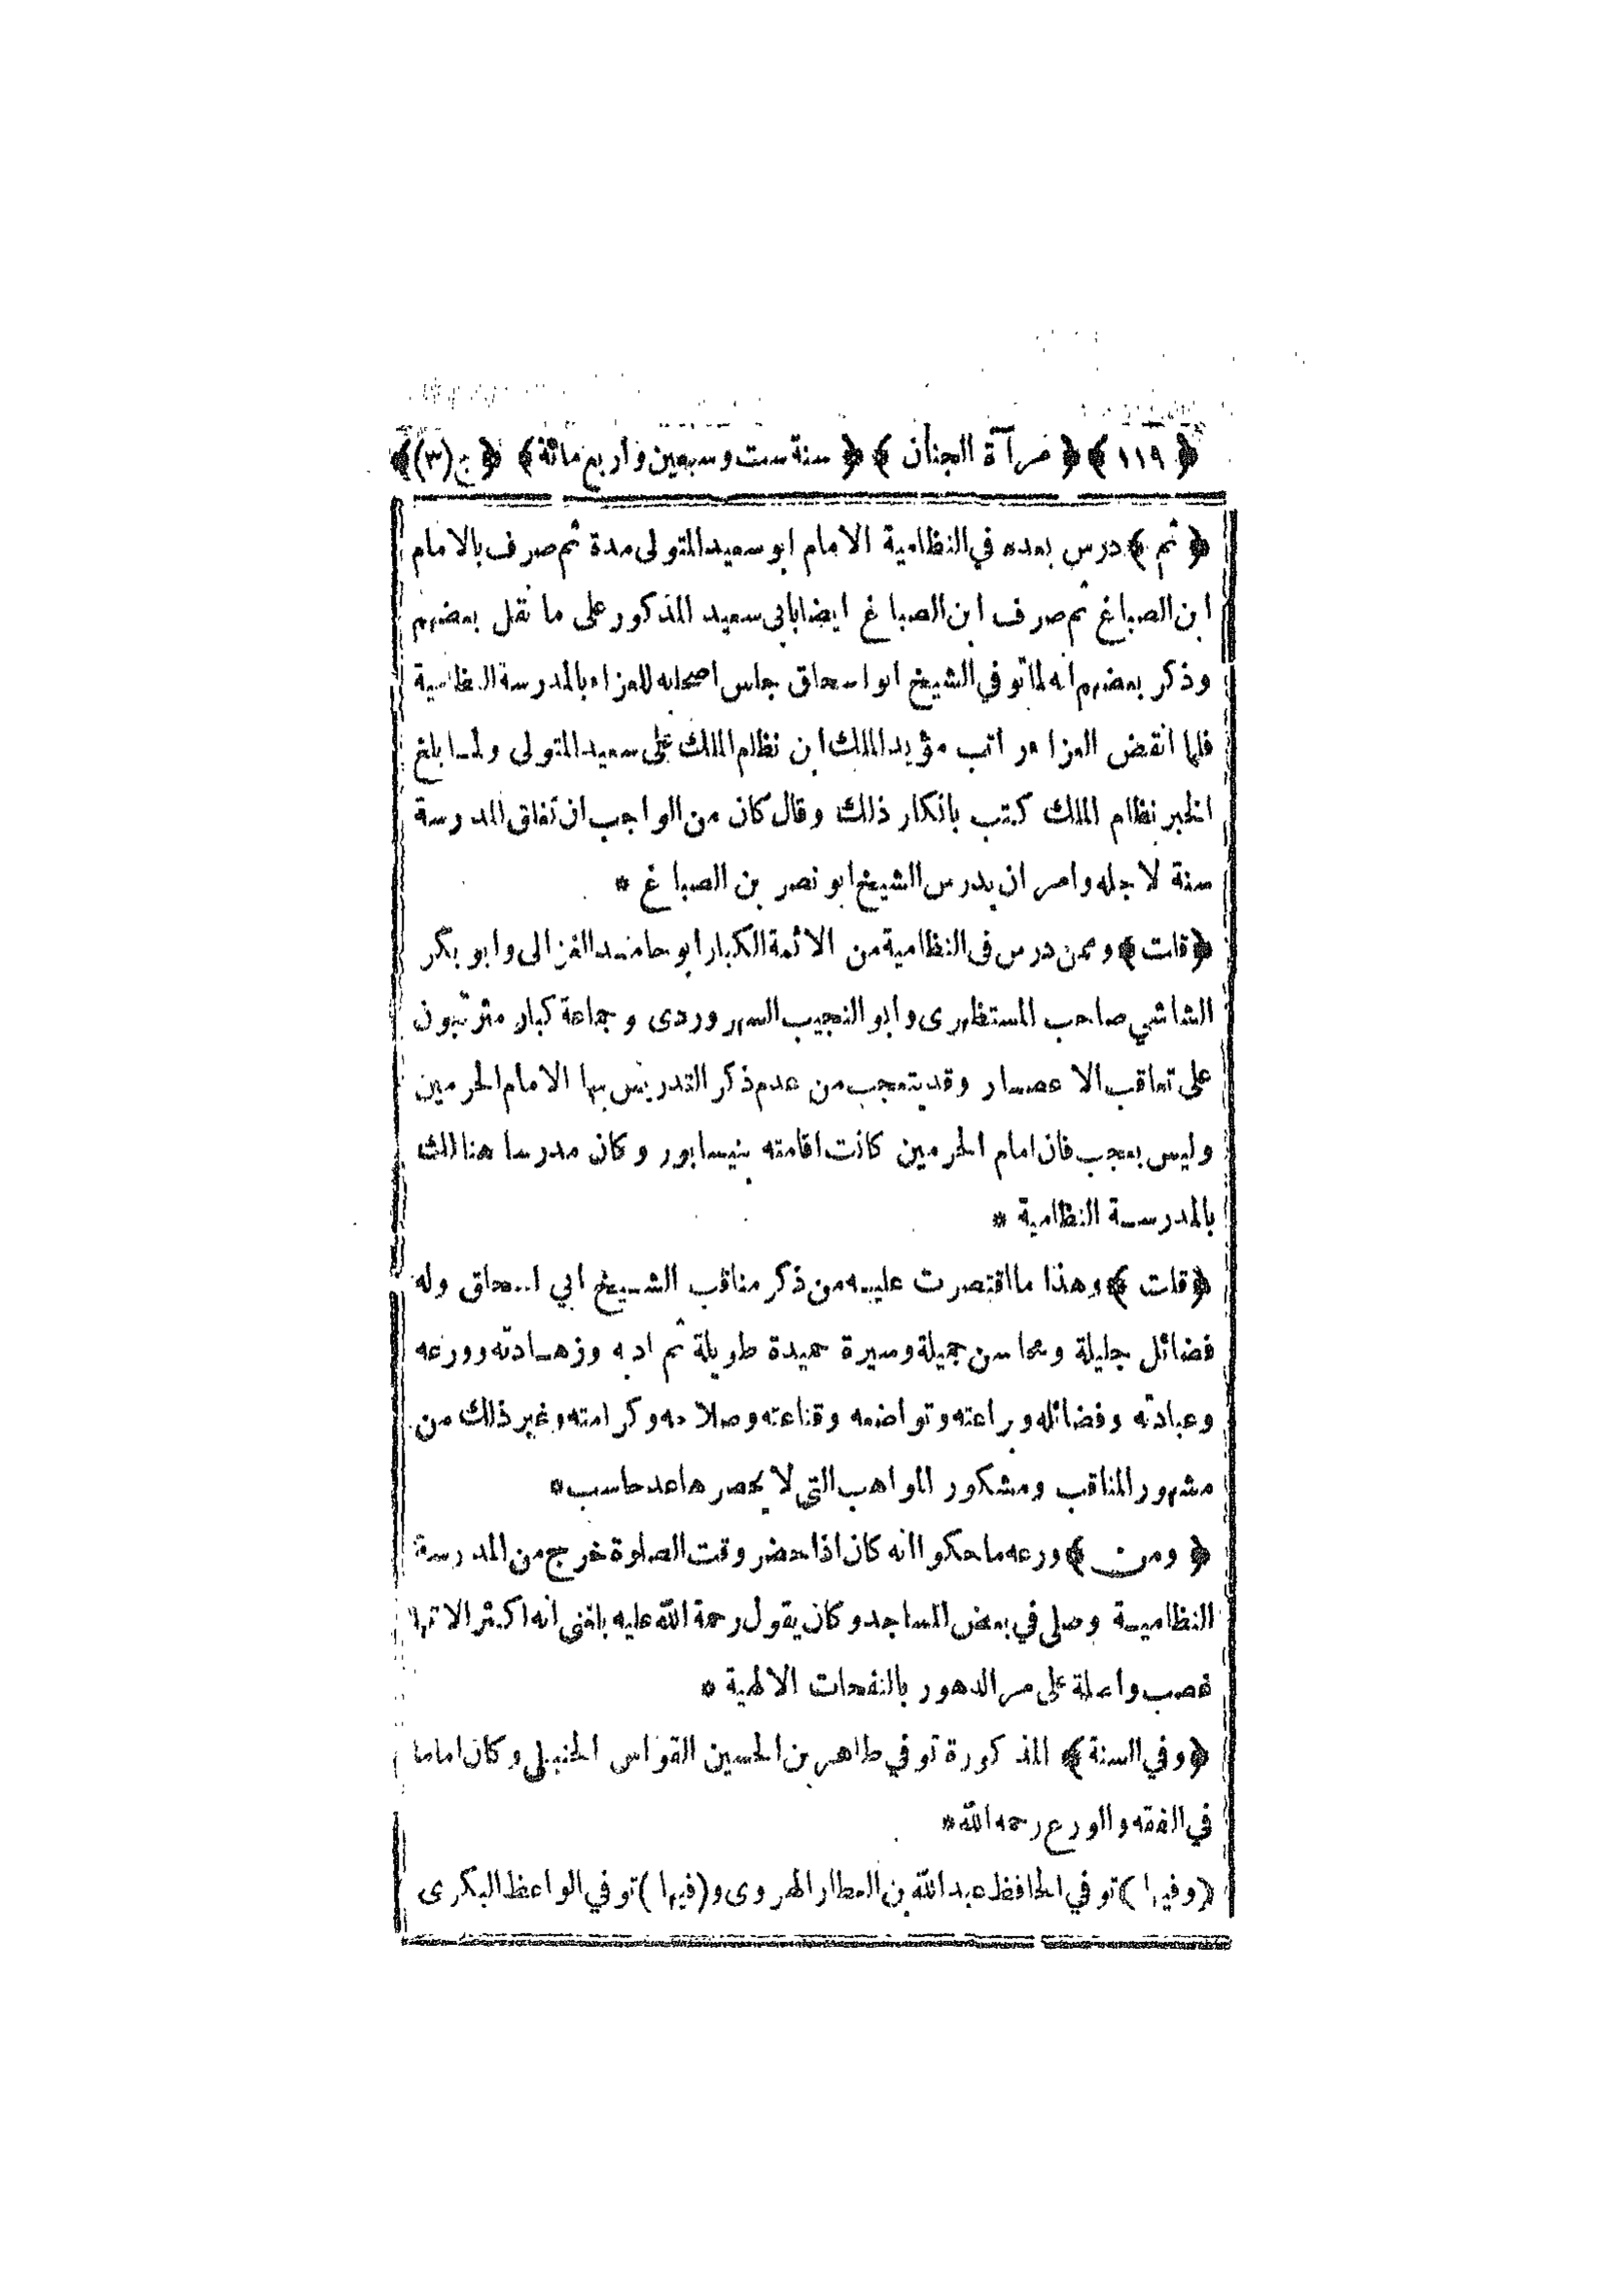 ﴿ ١١٩ ﴾ ﴿ مرآة الجنان ﴾ ﴿ سنة ست وسبعين واربع مائة ﴾ ﴿ ج (٣) ﴾
﴿ ثم ﴾ درس بعده في النظامية الامام ابو سعيد المتولى مدة ثم صرف بالامام
ابن الصباغ ثم صرف ابن الصباغ ايضا بابى سعيد المذكور على ما نقل بعضهم
وذكر بعضهم انه لما توفي الشيخ ابو اسحاق جلس اصحابه للعزاء بالمدرسة النظامية
فلما انقض العزاء راتب مؤيد الملك ابن نظام الملك على سعيد المتولى ولما بلغ
الخبر نظام الملك كتب بانكار ذلك وقال كان من الواجب ان تغلق المدرسة
سنة لاجله وامر ان يدرس الشيخ ابو نصر بن الصباغ *
﴿ قلت ﴾ وممن درس فى النظامية من الائمة الكبار ابو حامد الغزالى وابو بكر
الشاشي صاحب المستظهرى وابو النجيب السهروردى وجماعة كبار مترتبون
على تعاقب الاعصار وقد يتعجب من عدم ذكر التدريس بها الامام الحرمين
وليس بعجب فان امام الحرمين كانت اقامته بنيسابور وكان مدرسا هنالك
بالمدرسة النظامية *
﴿ قلت ﴾ وهذا ما اقتصرت عليه من ذكر مناقب الشيخ ابي اسحاق وله
فضائل جليلة ومحاسن جميلة وسيرة حميدة طويلة ثم ادبه وزهادته وورعه
وعبادته وفضائله وبراعته وتواضعه وقناعته وصلاحه وكرامته وغير ذلك من
مشهور المناقب ومشكور المواهب التي لا يحصرها عد حاسب *
﴿ ومن ﴾ ورعه ما حكوا انه كان اذا حضر وقت الصلوة خرج من المدرسة
النظامية وصلى في بعض المساجد وكان يقول رحمة الله عليه بلغنى انه اكثر الاتها
غصب واعلة على مر الدهور بالنفحات الالهية *
﴿ وفي السنة ﴾ المذكورة توفي طاهر بن الحسين القواس الحنبلي وكان اماما
في الفقه والورع رحمه الله *
( وفيها ) توفي الحافظ عبد الله بن العطار الهروى و ( فيها ) توفي الواعظ البكرى